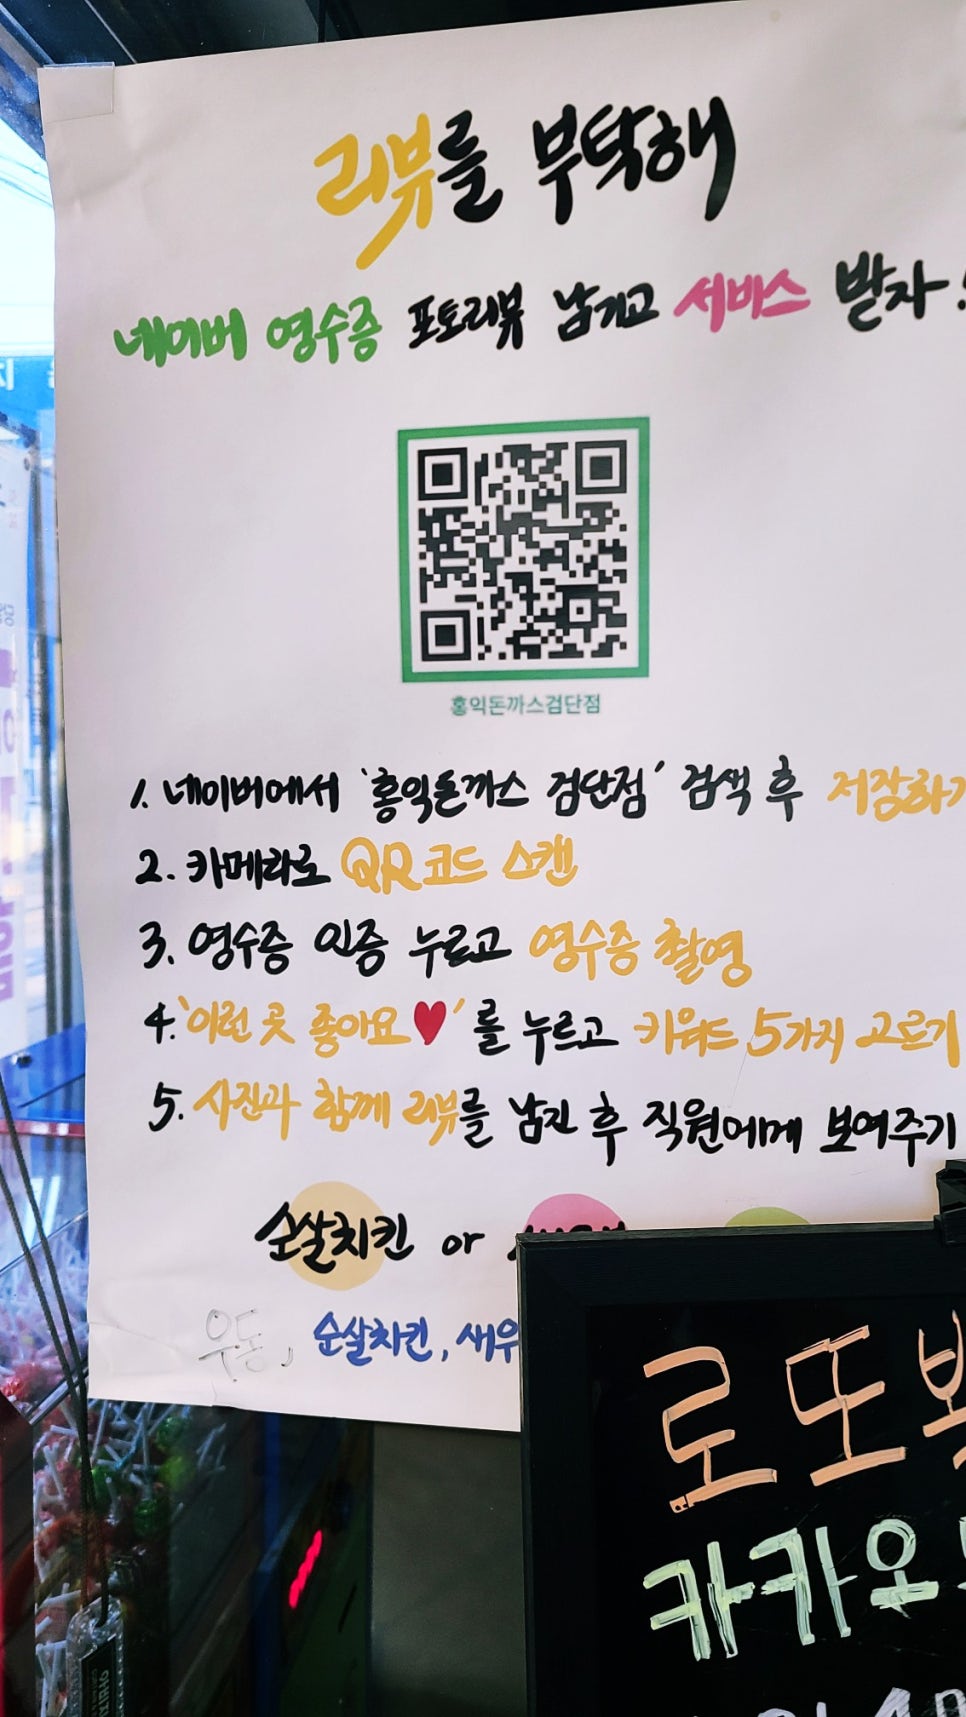 리뷰를 부탁해
네이버 영수증 포토리뷰 남기고 서비스 받자!
홍익돈까스검단점
1. 네이버에서 '홍익돈까스 검단점' 검색 후 저장하기
2. 카메라로 QR코드 스캔
3. 영수증 인증 누르고 영수증 촬영
4. '이런 곳 좋아요♥'를 누르고 키워드 5가지 고르기
5. 사진과 함께 리뷰를 남긴 후 직원에게 보여주기
순살치킨 or
우동, 순살치킨, 새우
로또
카카오